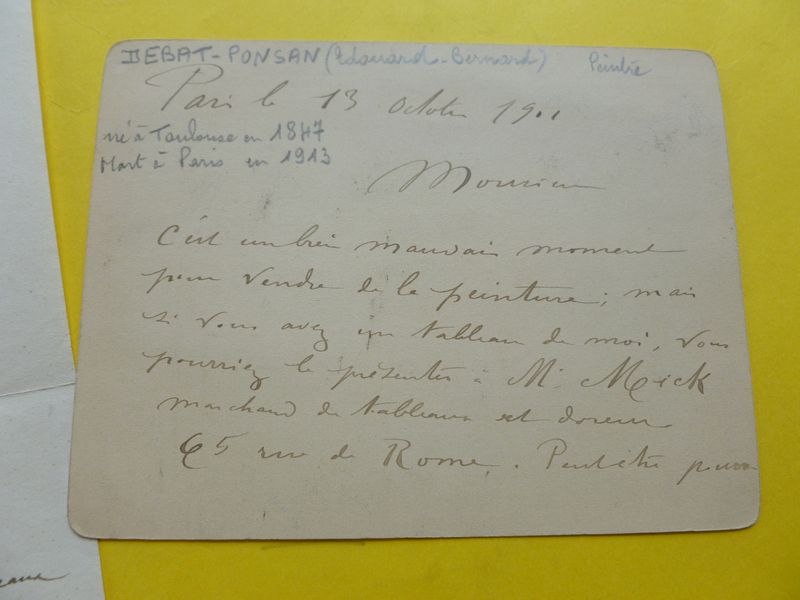 DEBAT-PONSAN (Edouard-Bernard) Peintre
Paris le 13 Octobre 1901
né à Toulouse en 1847
Mort à Paris en 1913
Monsieur
C'est un bien mauvais moment
pour vendre de la peinture; mais
si vous avez un tableau de moi, vous
pourriez le présenter à M. Meick
marchand de tableaux et doreur
65 rue de Rome. Peut être pourra